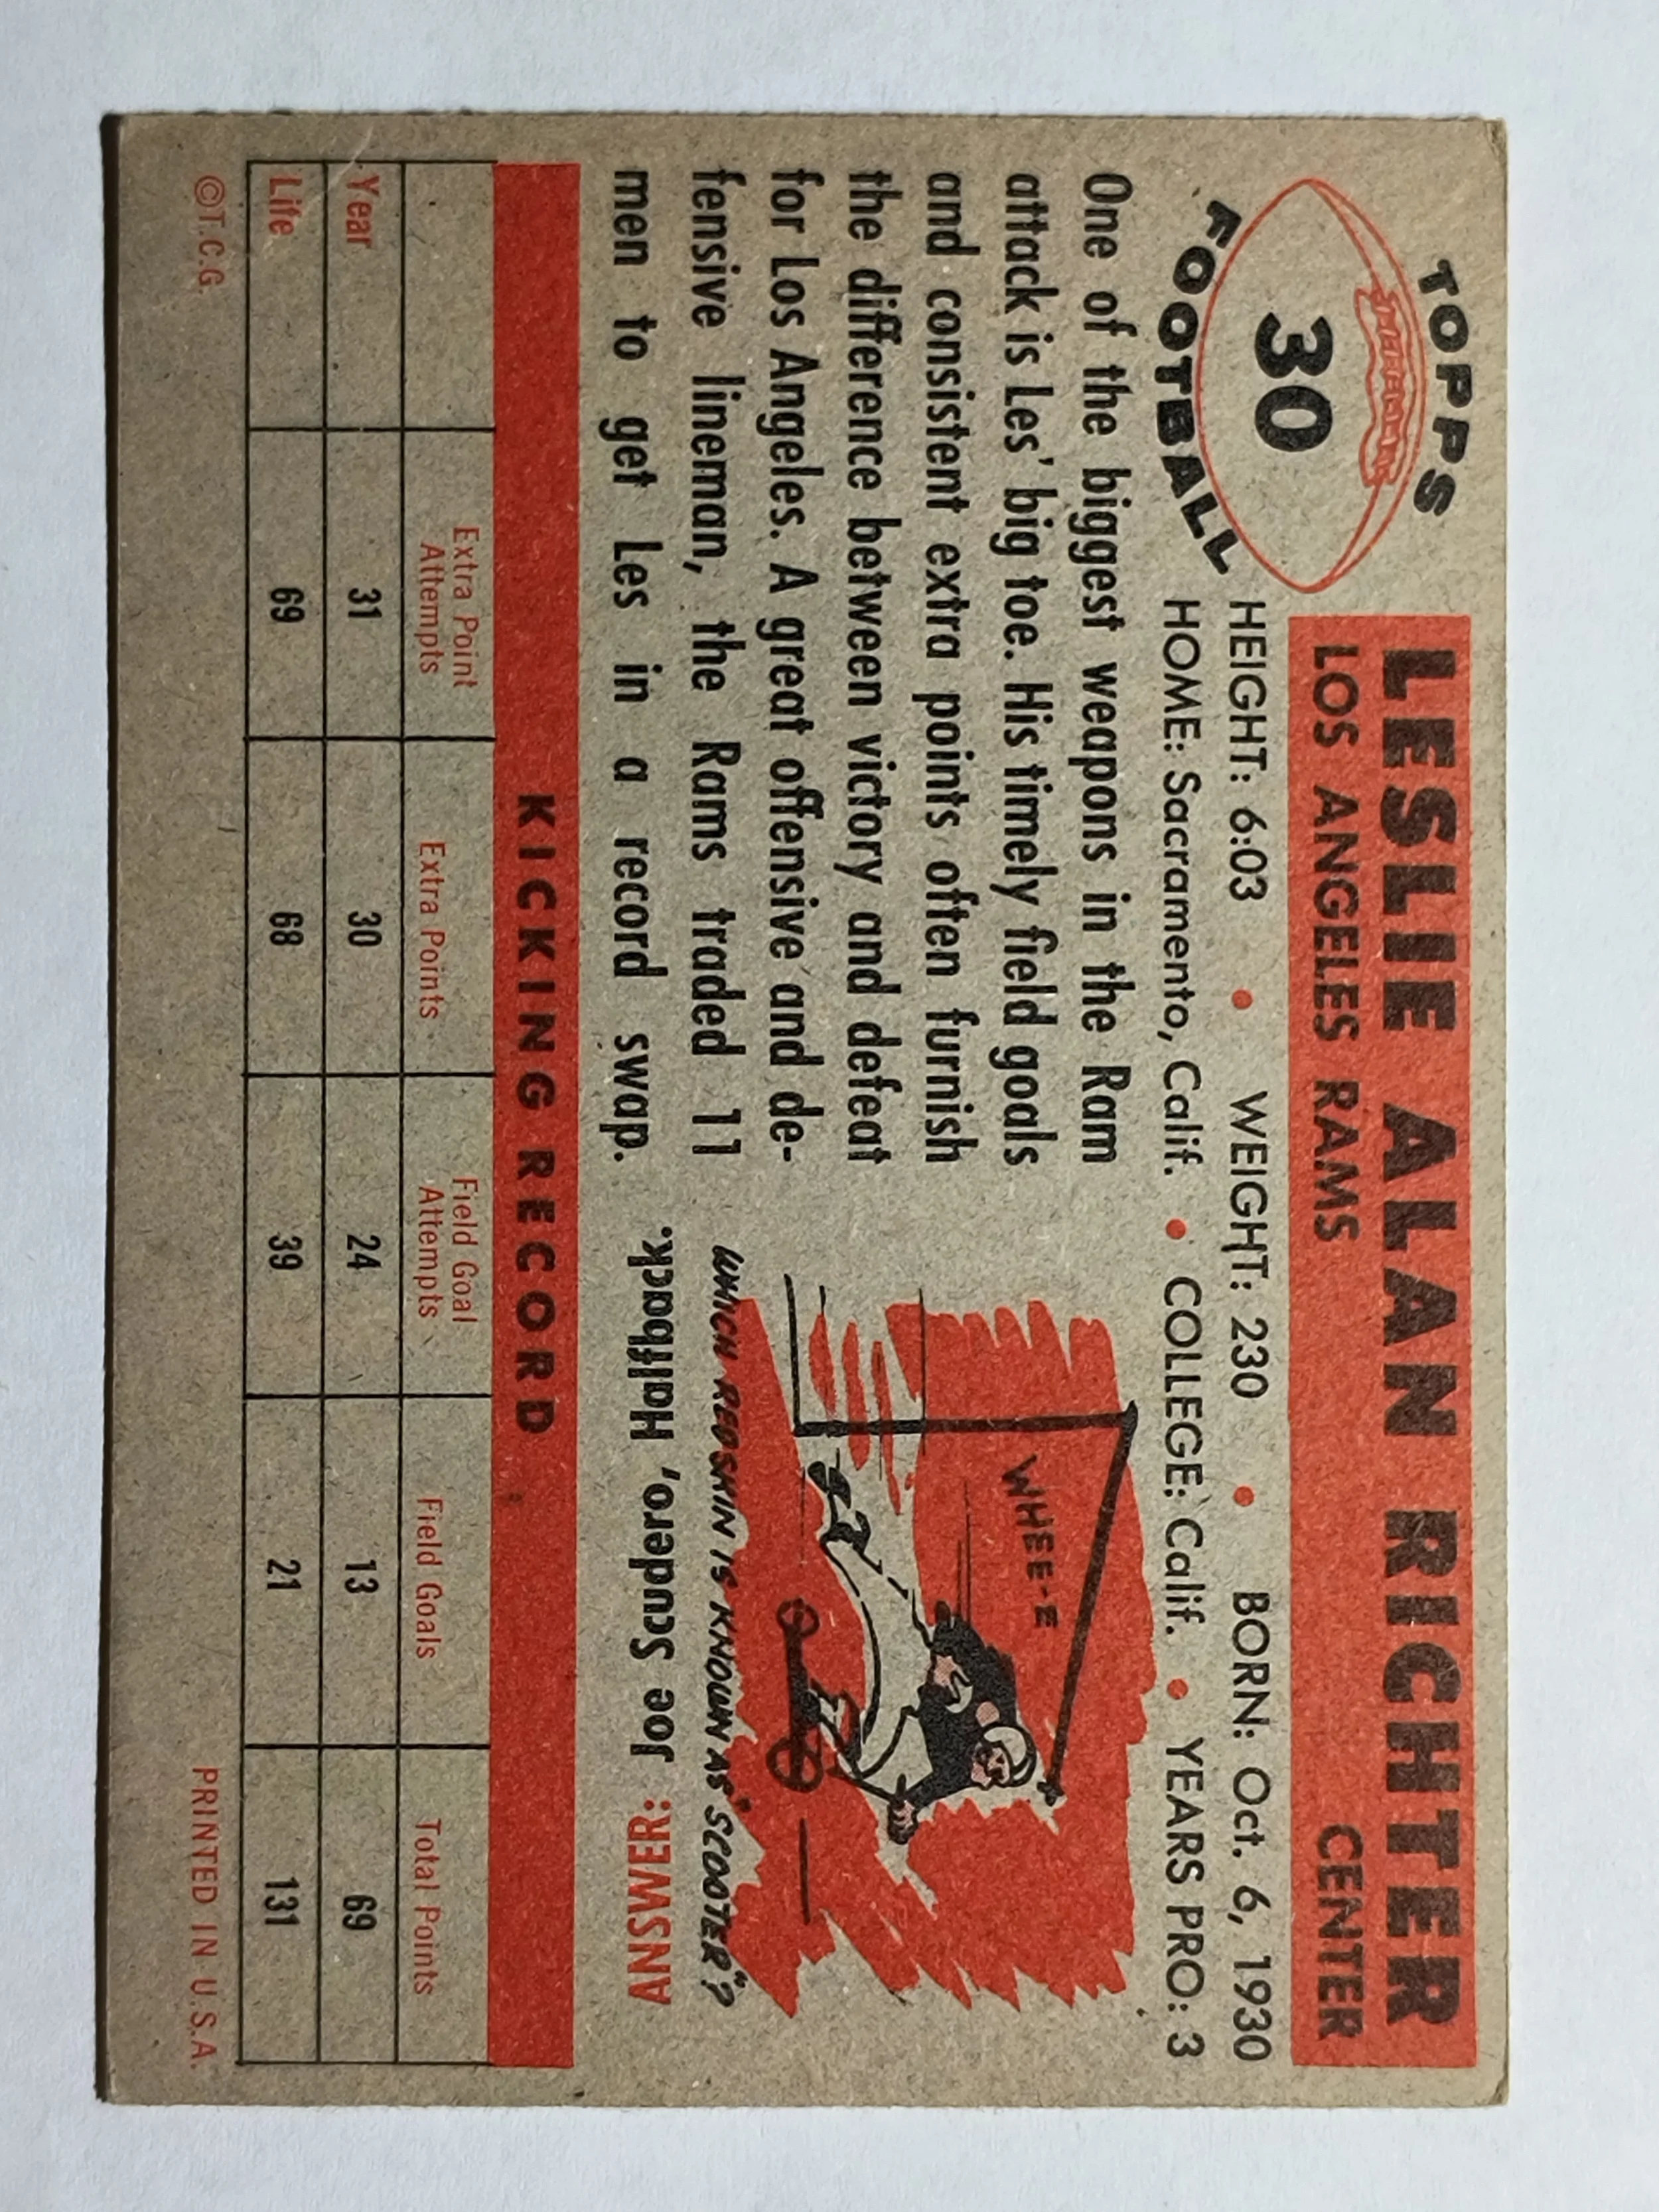 TOPPS
30
FOOTBALL
LESLIE ALAN RICHTER
LOS ANGELES RAMS CENTER
HEIGHT: 6:03 • WEIGHT: 230 • BORN: Oct. 6, 1930
HOME: Sacramento, Calif. • COLLEGE: Calif. • YEARS PRO: 3
One of the biggest weapons in the Ram
attack is Les' big toe. His timely field goals
and consistent extra points often furnish
the difference between victory and defeat
for Los Angeles. A great offensive and de-
fensive lineman, the Rams traded 11
men to get Les in a record swap.
WHEE-E
WHICH REDSKIN IS KNOWN AS "SCOOTER"?
ANSWER: Joe Scudero, Halfback.
KICKING RECORD
Extra Point Attempts Extra Points Field Goal Attempts Field Goals Total Points
Year 31 30 24 13 69
Life 69 68 39 21 131
©T.C.G. PRINTED IN U.S.A.